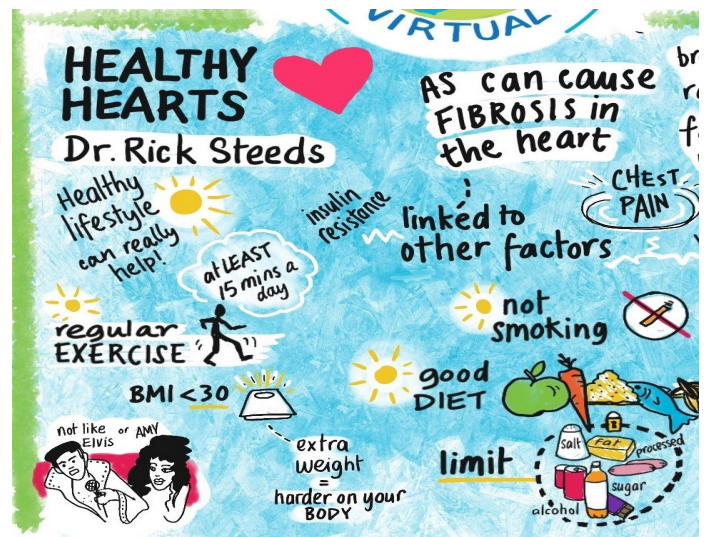 VIRTUAL
HEALTHY
HEARTS
Dr. Rick Steeds
Healthy
lifestyle
can really
help!
at LEAST
15 mins a
day
regular
EXERCISE
BMI <30
extra
weight
=
harder on your
BODY
not like or AMY
ELVIS
insulin
resistance
AS can cause
FIBROSIS in
the heart
linked to
other factors
CHEST
PAIN
not
smoking
good
DIET
limit
salt
Fat
processed
sugar
alcohol
br